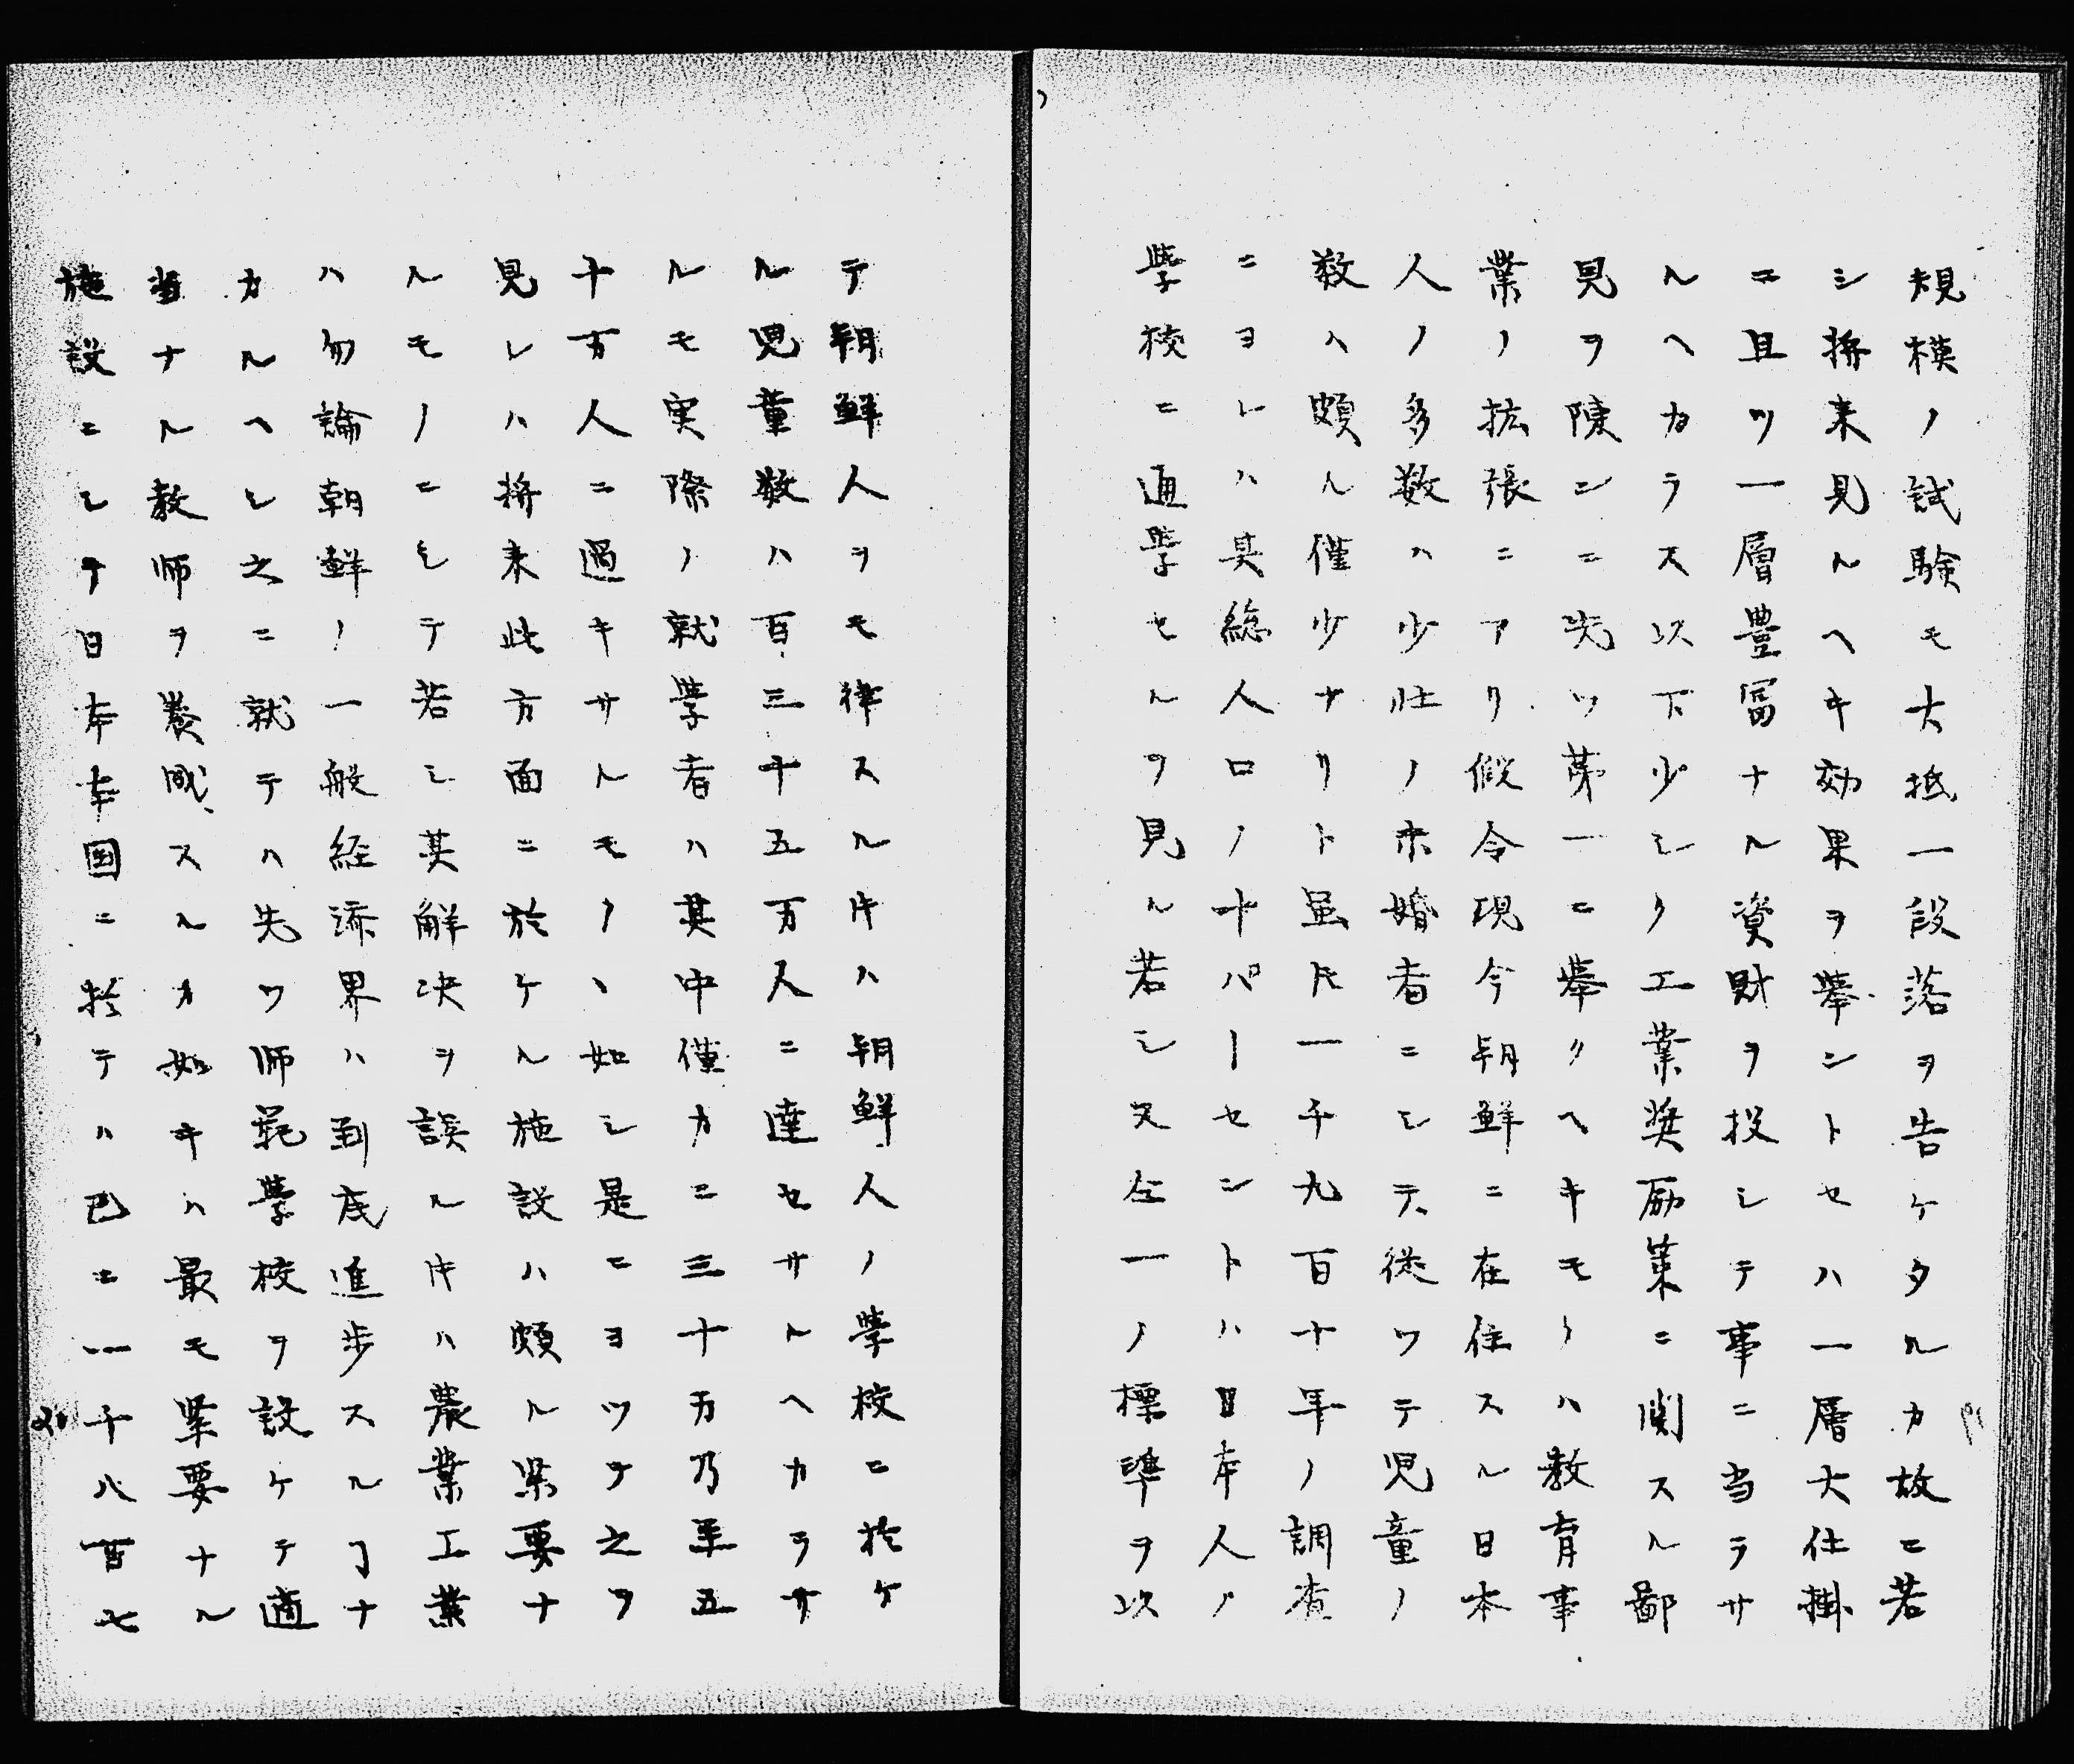 規模ノ試験モ大抵一段落ヲ告ケタルカ故ニ若
シ将来見ルヘキ効果ヲ挙ントセハ一層大仕掛
ニ且ツ一層豊富ナル資財ヲ投シテ事ニ当ラサ
ルヘカラス以下少シク工業奨励策ニ関スル鄙
見ヲ陳ンニ先ツ第一ニ挙クヘキモノハ教育事
業ノ拡張ニアリ假令現今朝鮮ニ在住スル日本
人ノ多数ハ少壮ノ未婚者ニシテ従ツテ児童ノ
数ハ頗ル僅少ナリト虽𪜈一千九百十年ノ調査
ニヨレハ其総人口ノ十パーセントハ日本人ノ
學校ニ通學セルヲ見ル若シ又仝一ノ標準ヲ以
テ朝鮮人ヲモ律スル片ハ朝鮮人ノ學校ニ於ケ
ル児童数ハ百三十五万人ニ達セサルヘカラサ
ルモ実際ノ就學者ハ其中僅カニ三十万乃至五
十万人ニ過キサルモノヽ如シ是ニヨツテ之ヲ
見レハ将来此方面ニ於ケル施設ハ頗ル緊要ナ
ルモノニシテ若シ其解决ヲ誤ル片ハ農業工業
ハ勿論朝鮮ノ一般経済界ハ到底進歩スルヿナ
カルヘシ之ニ就テハ先ツ師範學校ヲ設ケテ適
当ナル教師ヲ養成スルカ如キハ最モ緊要ナル
施設ニシテ日本本国ニ於テハ已ニ一千八百七